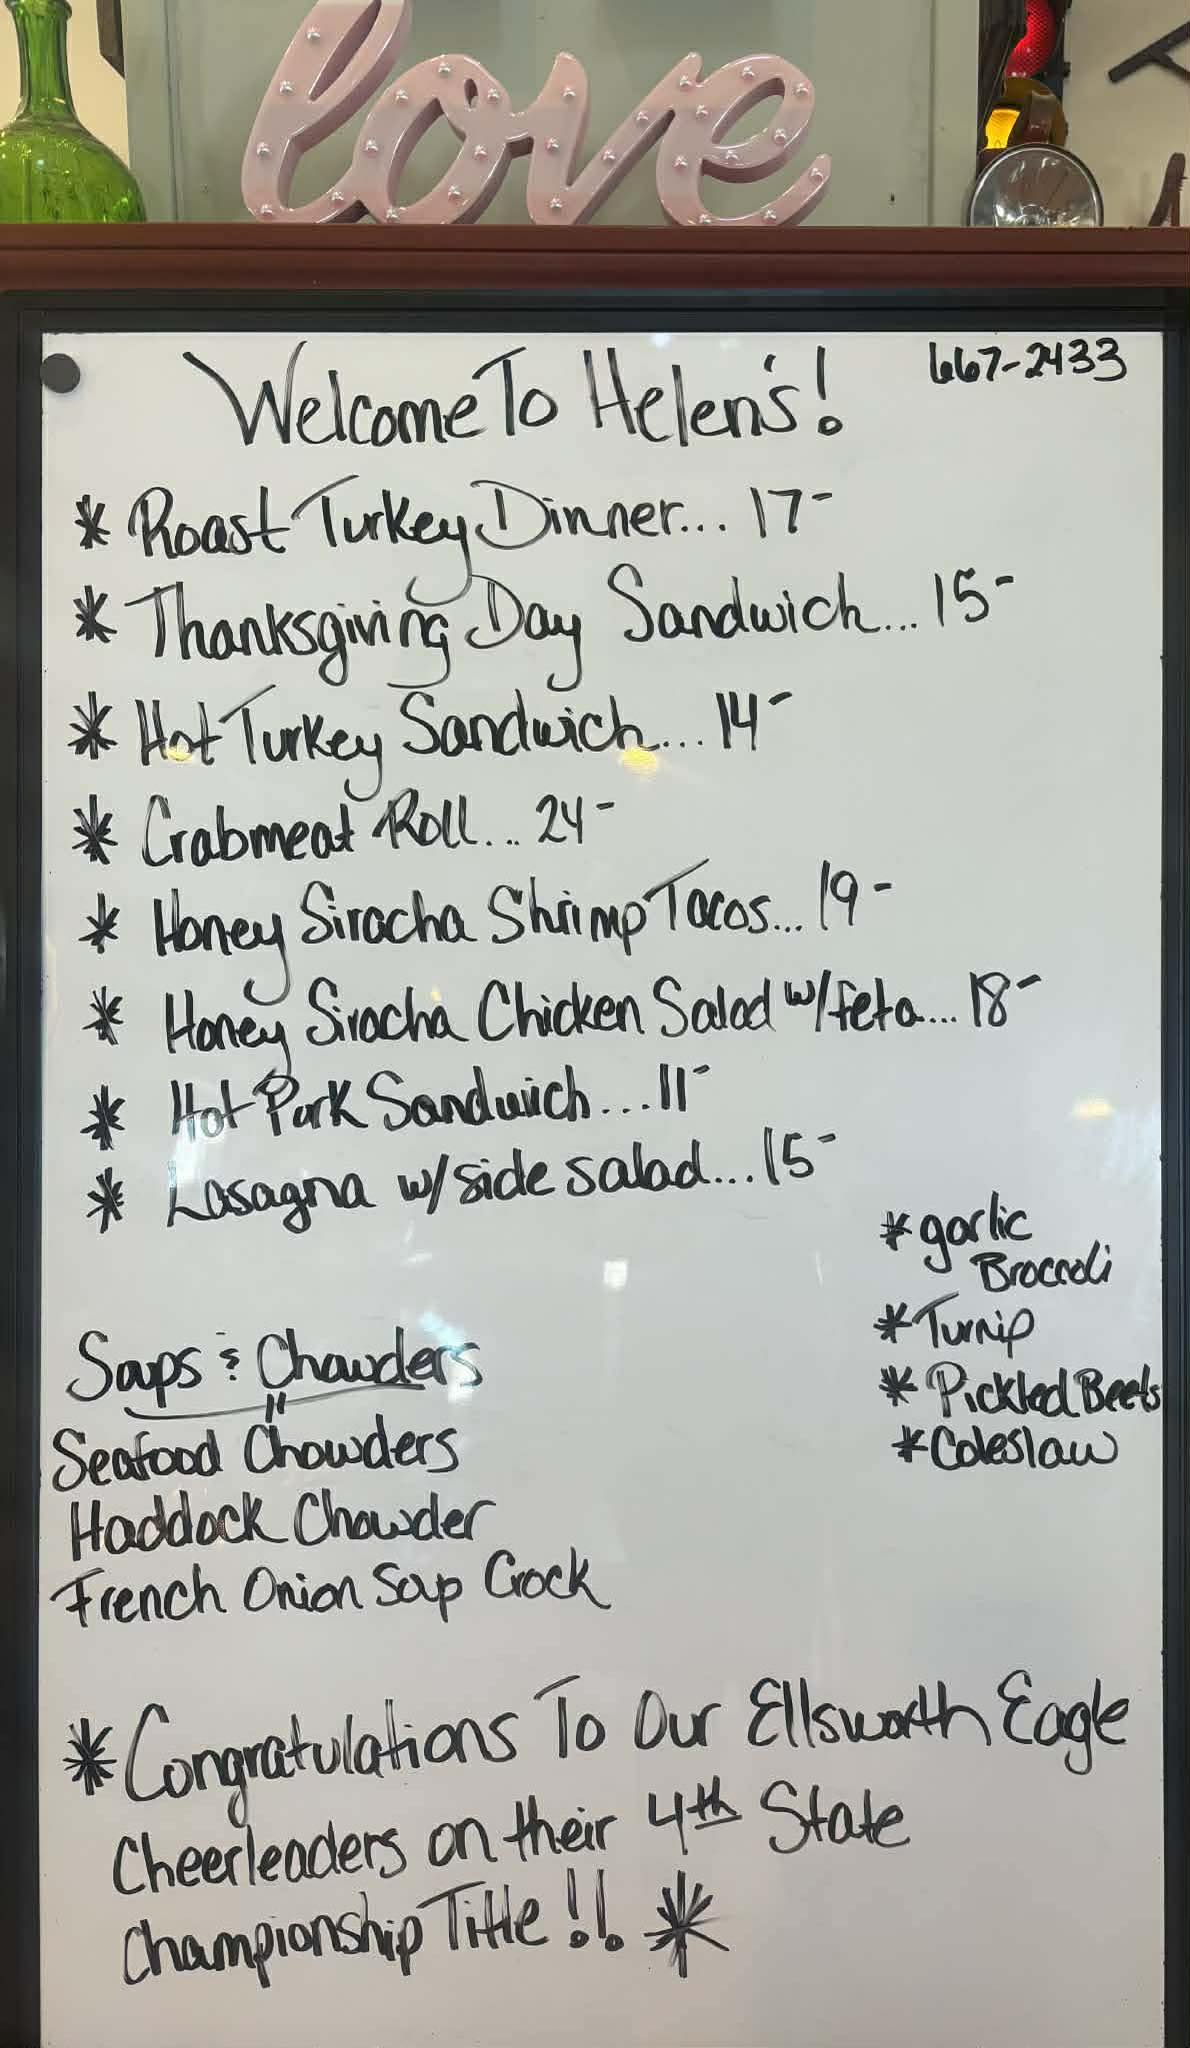 love
667-2433
Welcome To Helen's!
* Roast Turkey Dinner... 17-
* Thanksgiving Day Sandwich... 15-
* Hot Turkey Sandwich... 14-
* Crabmeat Roll... 24-
* Honey Siracha Shrimp Tacos... 19-
* Honey Siracha Chicken Salad w/feta... 18-
* Hot Pork Sandwich... 11-
* Lasagna w/side salad... 15-
* garlic
Broccoli
* Turnip
* Pickled Beets
* Coleslaw
Soups & Chowders
Seafood Chowders
Haddock Chowder
French Onion Soup Crock
* Congratulations To Our Ellsworth Eagle
Cheerleaders on their 4th State
Championship Title!! *